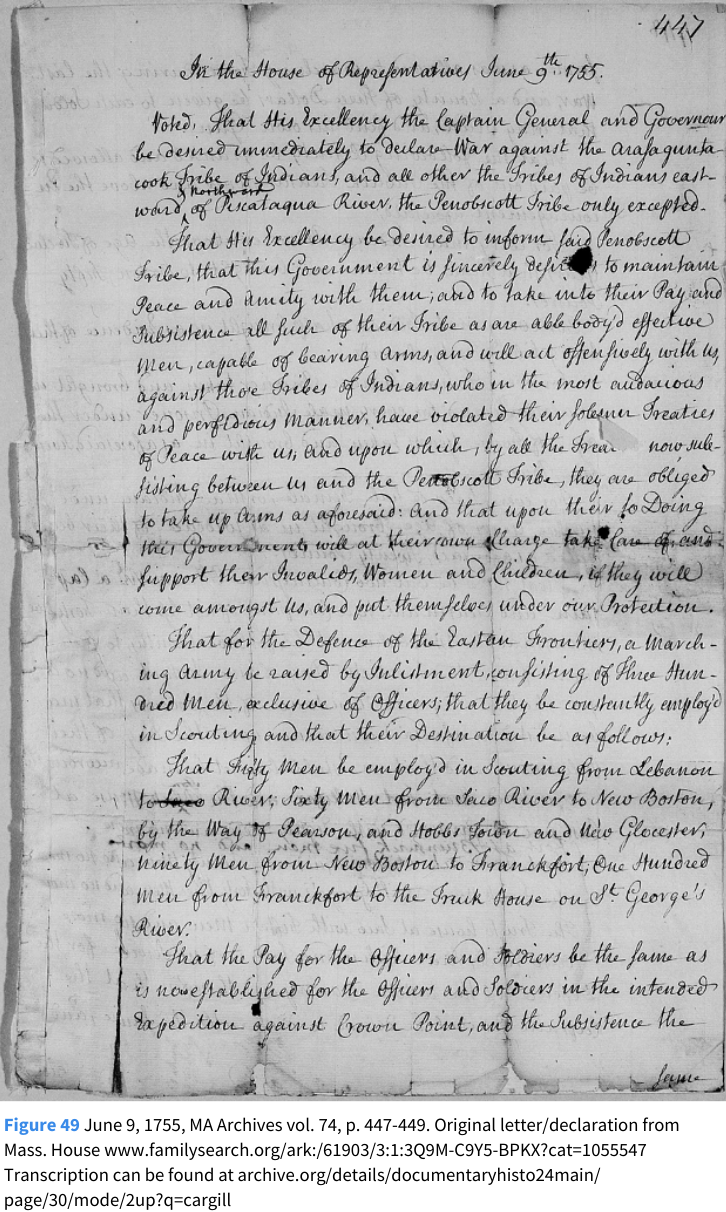 447
In the House of Representatives June 9th. 1755.
Voted, That His Excellency the Captain General and Governour
be desired immediately to declare War against the Arasagunta-
cook Tribe of Indians, and all other the Tribes of Indians east-
& Northward
ward, of Piscataqua River, the Penobscott Tribe only excepted.
That His Excellency be desired to inform said Penobscott
Tribe, that this Government is sincerely to maintain
Peace and Amity with them; and to take into their Pay and
Subsistence all such of their Tribe as are able body'd effective
Men, capable of bearing Arms, and will act offensively with us,
against those Tribes of Indians, who in the most audacious
and perfidious Manner, have violated their solemn Treaties
of Peace with us, and upon which, by all the Trea now sub-
sisting between us and the Penobscott Tribe, they are obliged
to take up Arms as aforesaid: And that upon their so Doing
this Government will at their own Charge take Care of, and
support their Invalids, Women and Children, if they will
come amongst Us, and put themselves under our Protection.
That for the Defence of the Eastern Frontiers, a March-
ing Army be raised by Inlistment, consisting of Three Hun-
dred Men, exclusive of Officers; that they be constantly employ'd
in Scouting and that their Destination be as follows:
That Fifty Men be employ'd in Scouting from Lebanon
to Saco River; Sixty Men from Saco River to New Boston,
by the Way of Pearson, and Hobbs Town and New Glocester;
Ninety Men from New Boston to Franckfort; One Hundred
Men from Franckfort to the Truck House on St. George's
River.
That the Pay for the Officers and Soldiers be the same as
is now established for the Officers and Soldiers in the intended
Expedition against Crown Point, and the Subsistence the
same
Figure 49 June 9, 1755, MA Archives vol. 74, p. 447-449. Original letter/declaration from
Mass. House www.familysearch.org/ark:/61903/3:1:3Q9M-C9Y5-BPKX?cat=1055547
Transcription can be found at archive.org/details/documentaryhisto24main/
page/30/mode/2up?q=cargill